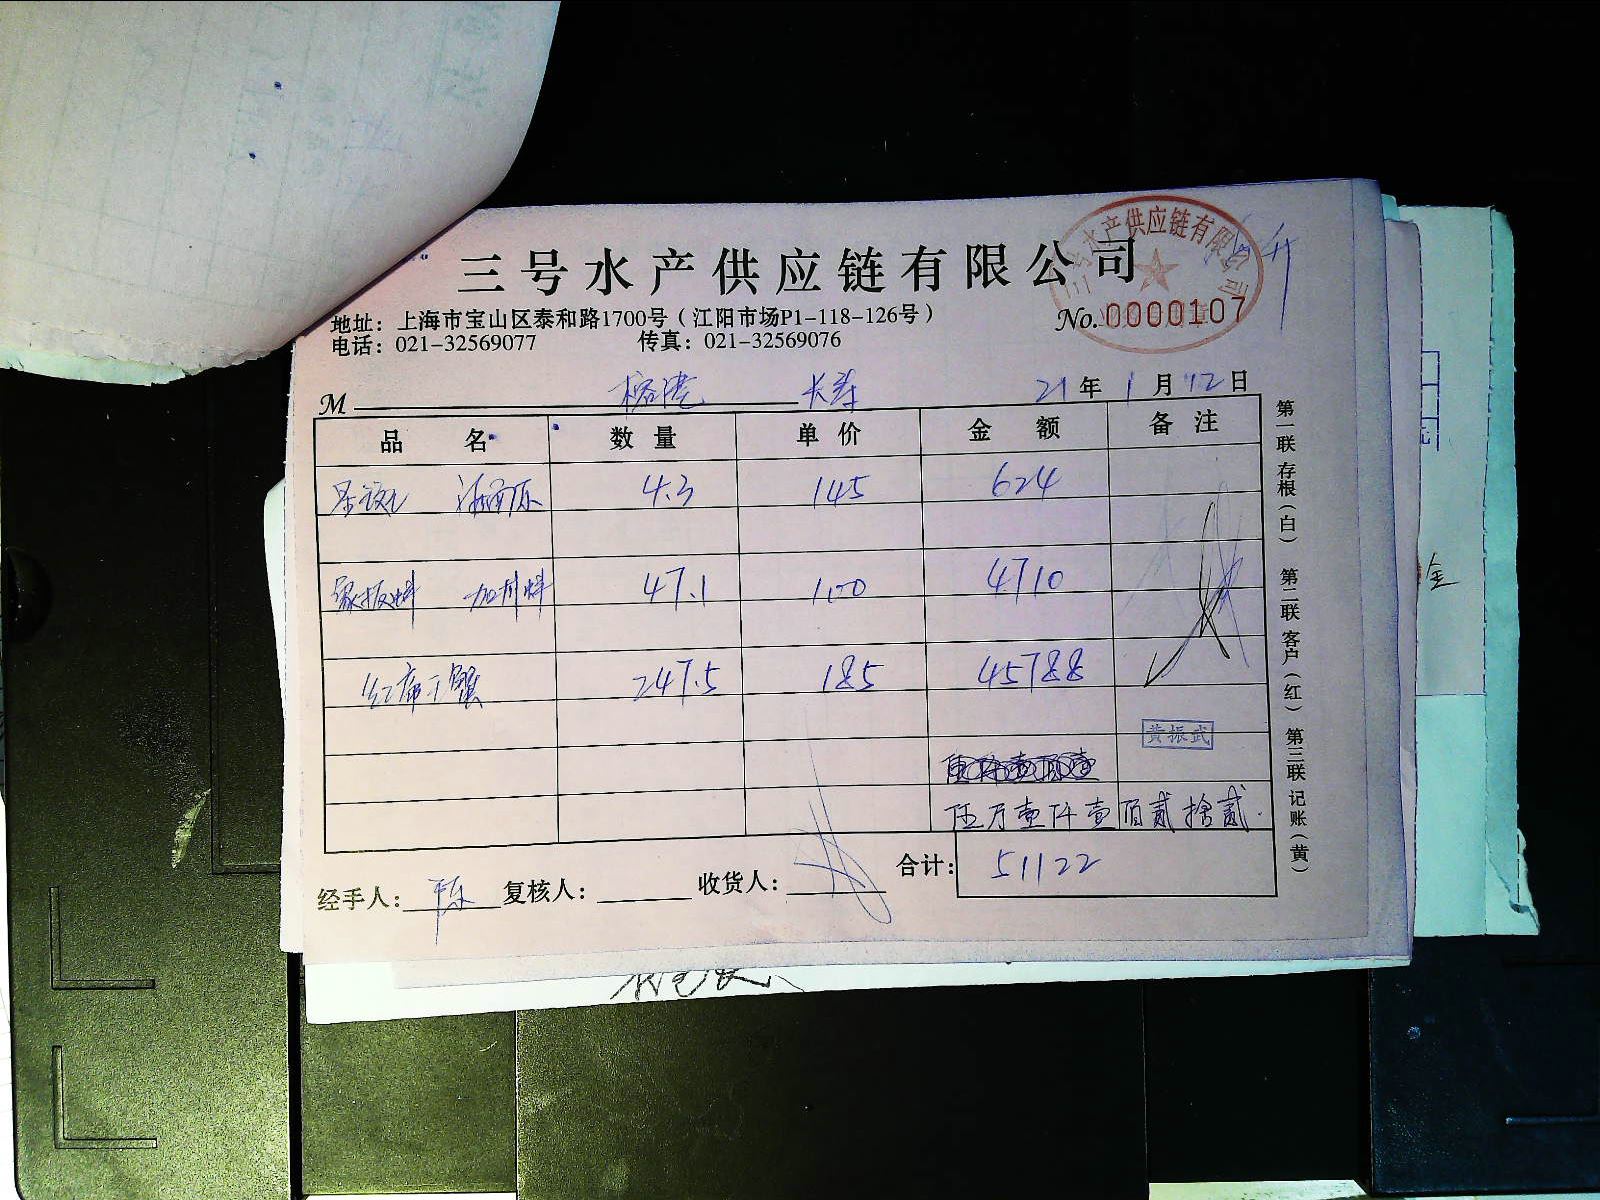 三号水产供应链有限公司
三号水产供应链有限公司
地址：上海市宝山区泰和路1700号（江阳市场P1-118-126号）
No.0000107
电话：021-32569077 传真：021-32569076
M 榕港 长寿 21年1月12日
品名 数量 单价 金额 备注
4.3 145 624
加州蚌 47.1 100 4710
红帝王蟹 247.5 185 45788
黄振武
伍万壹仟壹佰贰拾贰.
合计：51122
经手人：陈 复核人： 收货人：
第一联 存根（白） 第二联 客户（红） 第三联 记账（黄）
金